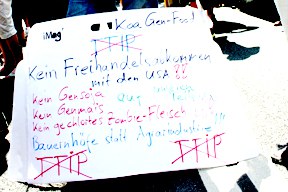 iMog Koa Gen-Food
TTIP
Kein Freihandelsabkommen
mit den USA !!
Kein Gensoja
Kein Genmais
Kein gechlortes Zombie-Fleisch !
Bauernhöfe statt Agrarindustrie !!!
TTIP TTIP